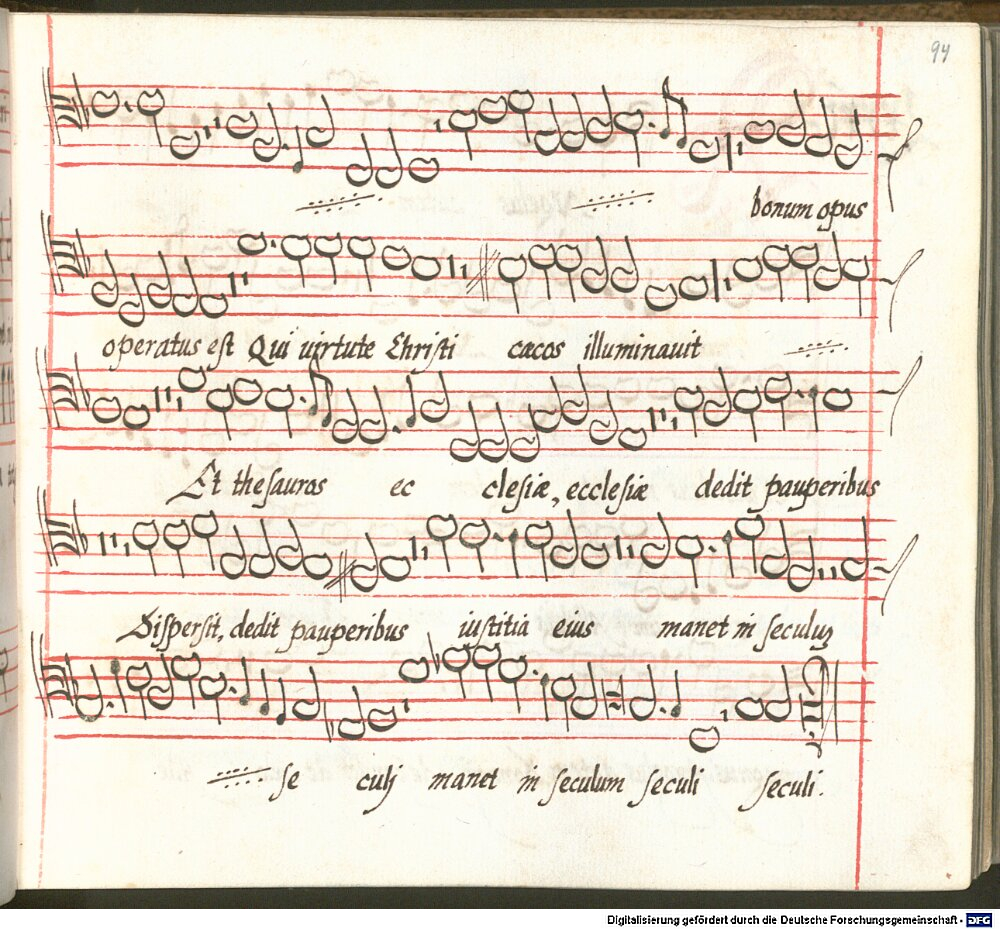 94
bonum opus
operatus est Qui uirtute Christi cæcos illuminauit
Et thesauros ec clesiæ, ecclesiæ dedit pauperibus
Dispersit, dedit pauperibus iustitia eius manet in seculuʒ
se culj manet in seculum seculi seculi.
Digitalisierung gefördert durch die Deutsche Forschungsgemeinschaft - DFG